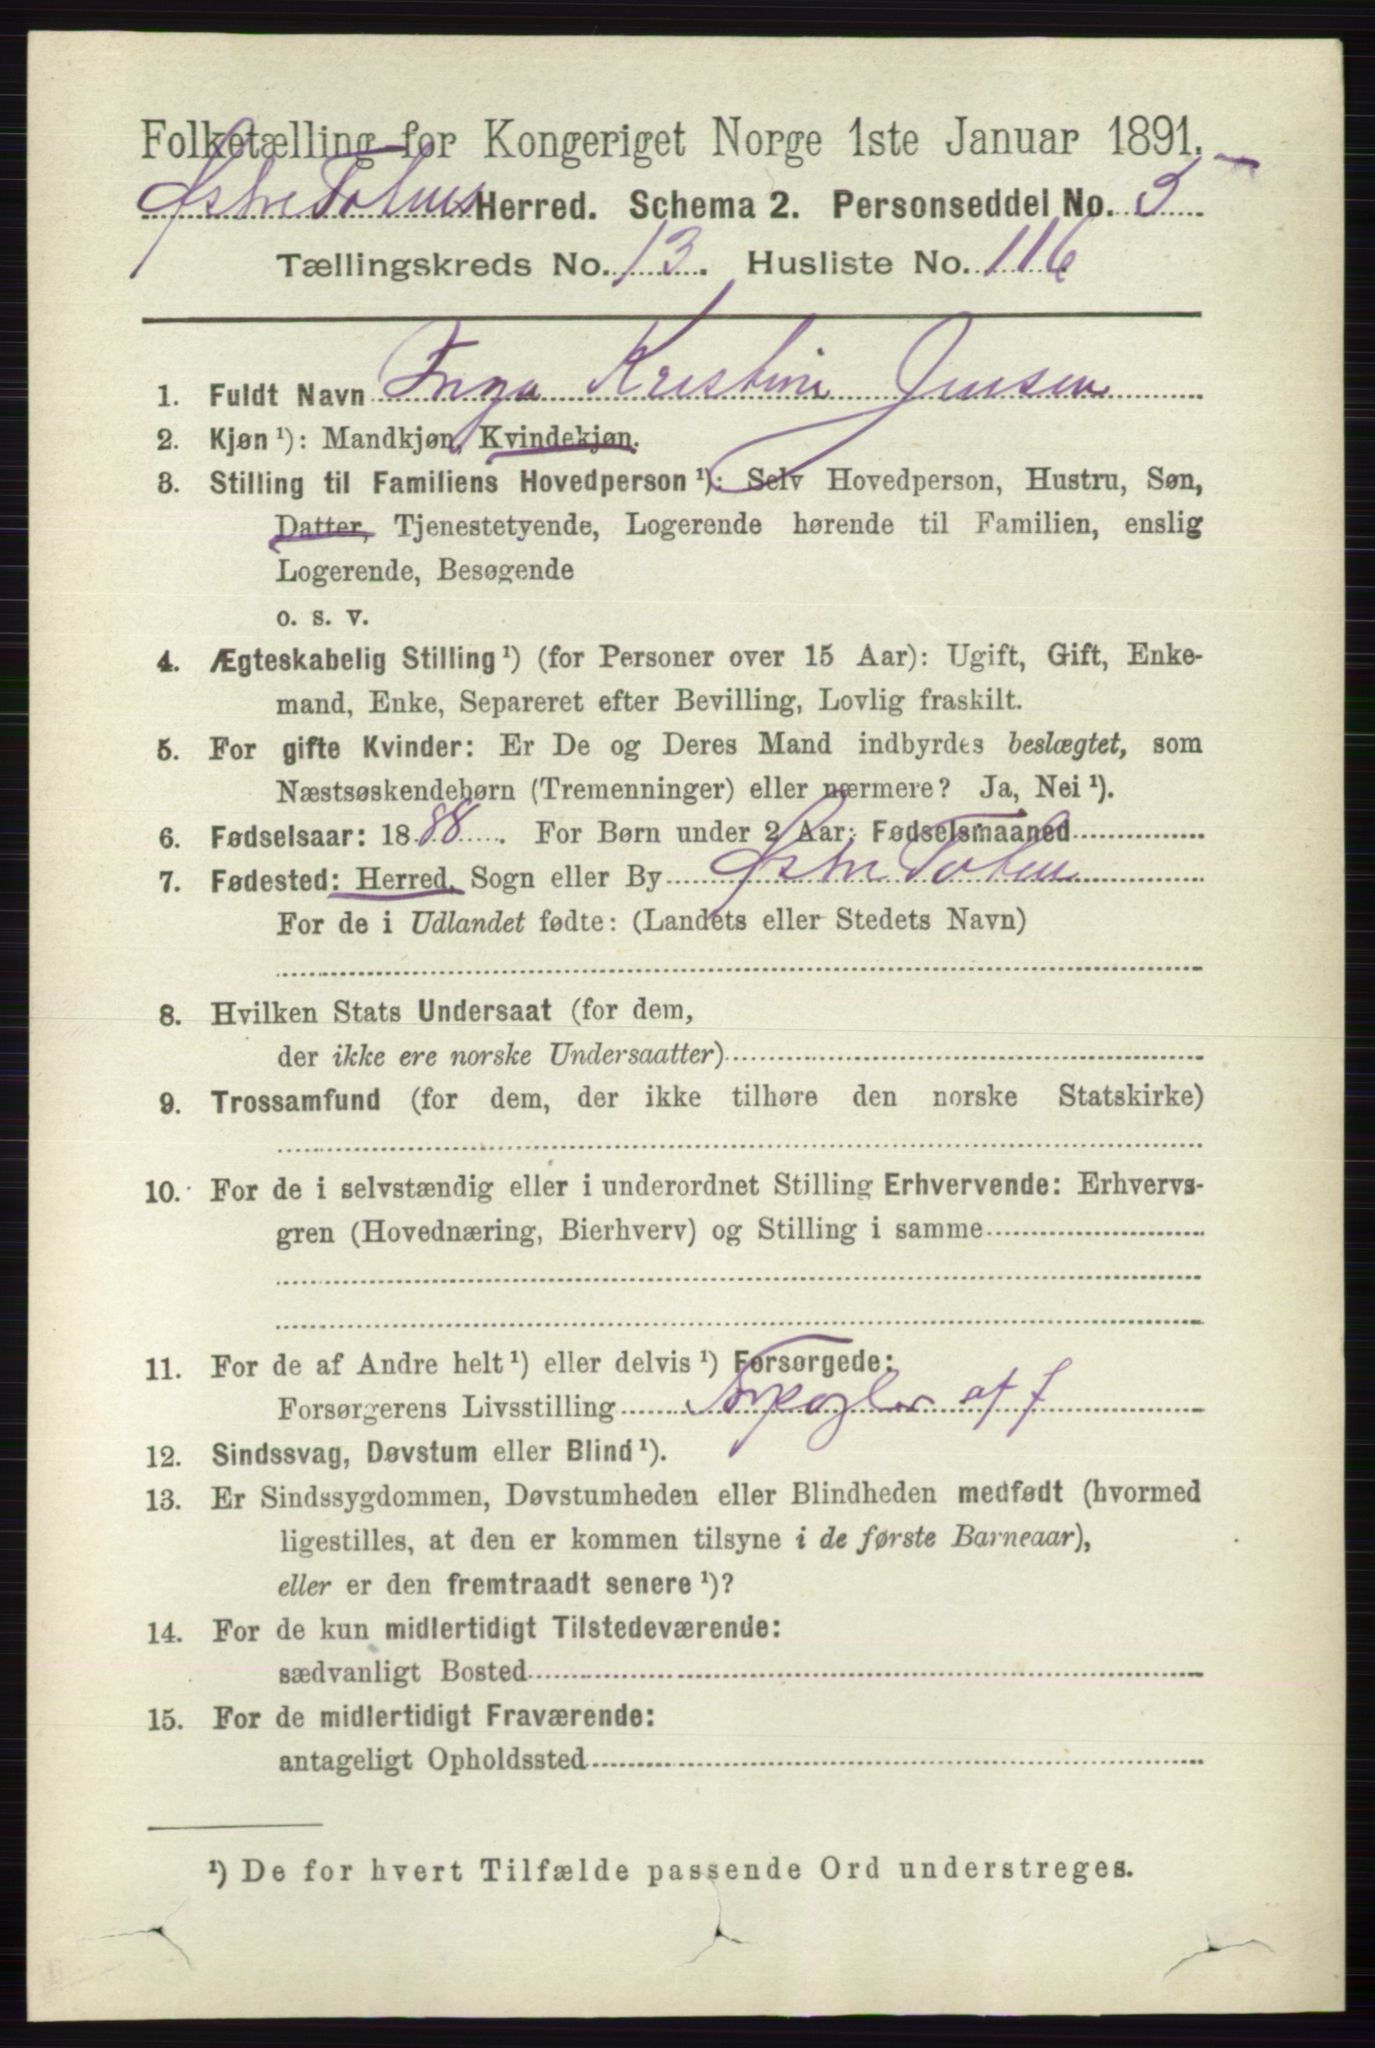 Folketælling for Kongeriget Norge 1ste Januar 1891.
Østre Totens Herred. Schema 2. Personseddel No. 5
Tællingskreds No. 13. Husliste No. 116
1. Fuldt Navn Inga Kristine Jensen
2. Kjøn ¹): Mandkjøn, Kvindekjøn.
3. Stilling til Familiens Hovedperson ¹): Selv Hovedperson, Hustru, Søn,
Datter, Tjenestetyende, Logerende hørende til Familien, enslig
Logerende, Besøgende
o. s. v.
4. Ægteskabelig Stilling ¹) (for Personer over 15 Aar): Ugift, Gift, Enke-
mand, Enke, Separeret efter Bevilling, Lovlig fraskilt.
5. For gifte Kvinder: Er De og Deres Mand indbyrdes beslægtet, som
Næstsøskendebørn (Tremenninger) eller nærmere? Ja, Nei ¹).
6. Fødselsaar: 1888. For Børn under 2 Aar: Fødselsmaaned
7. Fødested: Herred, Sogn eller By Østre Toten
For de i Udlandet fødte: (Landets eller Stedets Navn)
8. Hvilken Stats Undersaat (for dem,
der ikke ere norske Undersaatter)
9. Trossamfund (for dem, der ikke tilhøre den norske Statskirke)
10. For de i selvstændig eller i underordnet Stilling Erhvervende: Erhvervs-
gren (Hovednæring, Bierhverv) og Stilling i samme
11. For de af Andre helt ¹) eller delvis ¹) Forsørgede:
Forsørgerens Livsstilling af f
12. Sindssvag, Døvstum eller Blind ¹).
13. Er Sindssygdommen, Døvstumheden eller Blindheden medfødt (hvormed
ligestilles, at den er kommen tilsyne i de første Barneaar),
eller er den fremtraadt senere ¹)?
14. For de kun midlertidigt Tilstedeværende:
sædvanligt Bosted
15. For de midlertidigt Fraværende:
antageligt Opholdssted
¹) De for hvert Tilfælde passende Ord understreges.